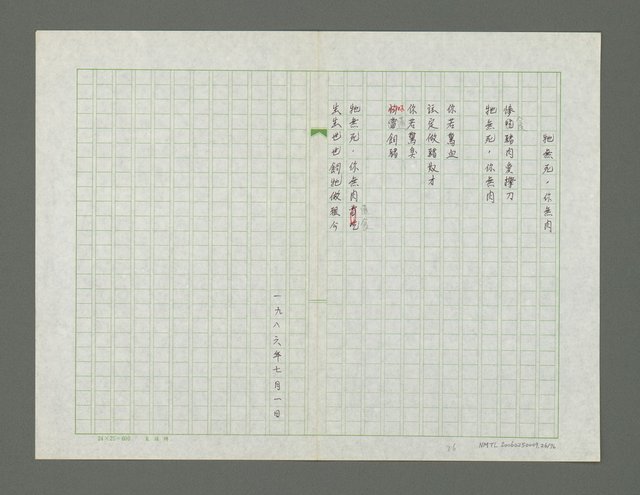 牠無死，你無肉
俸咱豬肉愛攑刀
牠無死，你無肉
你若驚血
註定做豬奴才
你若驚臭
當飼豬
牠無死，你無肉
生生世世飼牠做祖公
一九八六年七月一日
24×25=600
26
NMTL20060250009,26/76